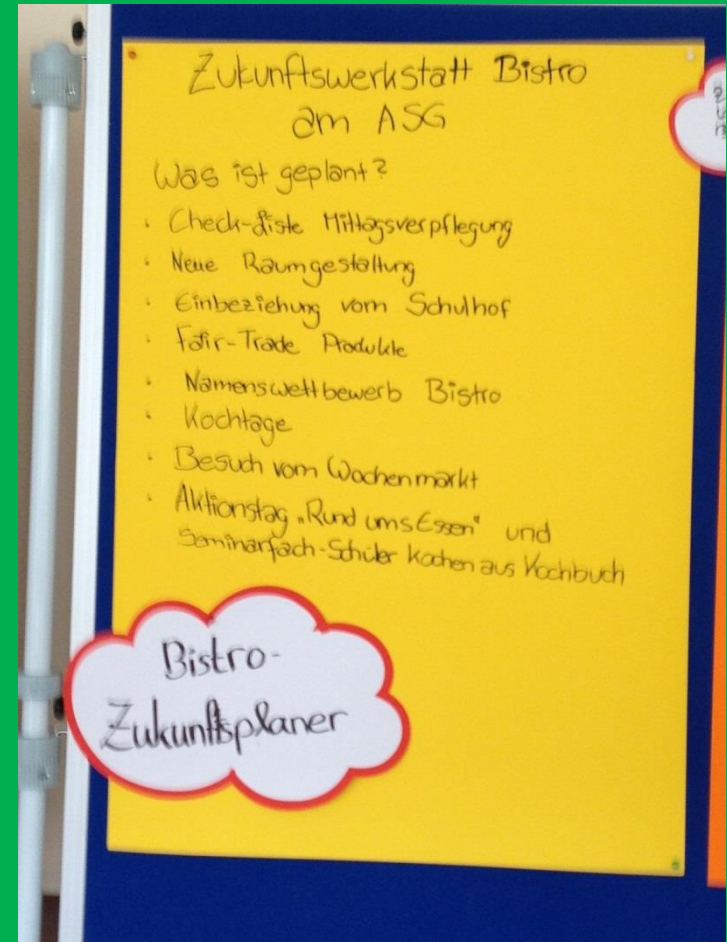 Zukunftswerkstatt Bistro
am ASG
Was ist geplant?
· Check-Liste Mittagsverpflegung
· Neue Raumgestaltung
· Einbeziehung vom Schulhof
· Fair-Trade Produkte
· Namenswettbewerb Bistro
· Kochtage
· Besuch vom Wochenmarkt
· Aktionstag „Rund ums Essen" und
Seminarfach-Schüler kochen aus Kochbuch
Bistro-
Zukunftsplaner